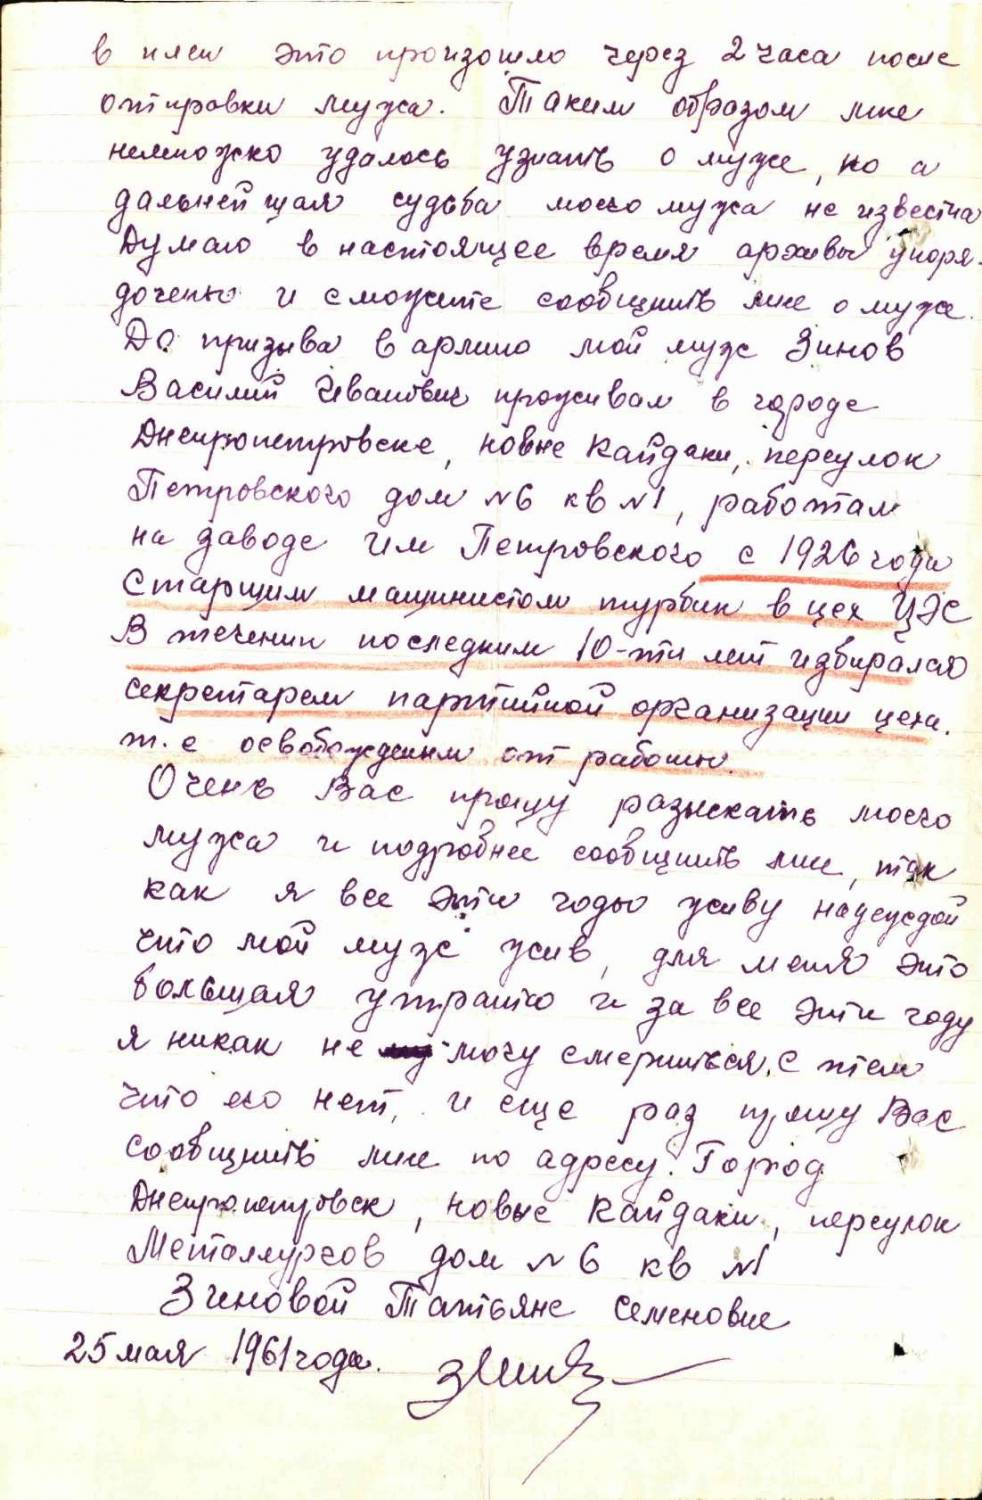 в плен это произошло через 2 часа после
отправки мужа. Таким образом мне
немножко удалось узнать о муже, но а
дальнейшая судьба моего мужа не известна
Думаю в настоящее время архивы упоря-
дочены и сможите сообщить мне о муже.
До призыва в армию мой муж Зинов
Василий Иванович проживал в городе
Днепропетровске, новые Кайдаки, переулок
Петровского дом №6 кв №1, работал
на заводе им Петровского с 1926 года
Старшим машинистом турбин в цех ЦЭС
В течении последним 10-ти лет избирался
секретарем партийной организации цеха.
т.е освобожденым от работы.
Очень Вас прошу разыскать моего
мужа и подробнее сообщить мне, так
как я все эти годы живу надеждой
что мой муж жив, для меня это
большая утрата и за все эти году
я никак не могу смериться, с тем
что его нет, и еще раз прошу Вас
сообщить мне по адресу. Город
Днепропетровск, новые Кайдаки, переулок
Металлургов дом №6 кв №1
Зиновой Татьяне Семеновне
25 мая 1961 года.